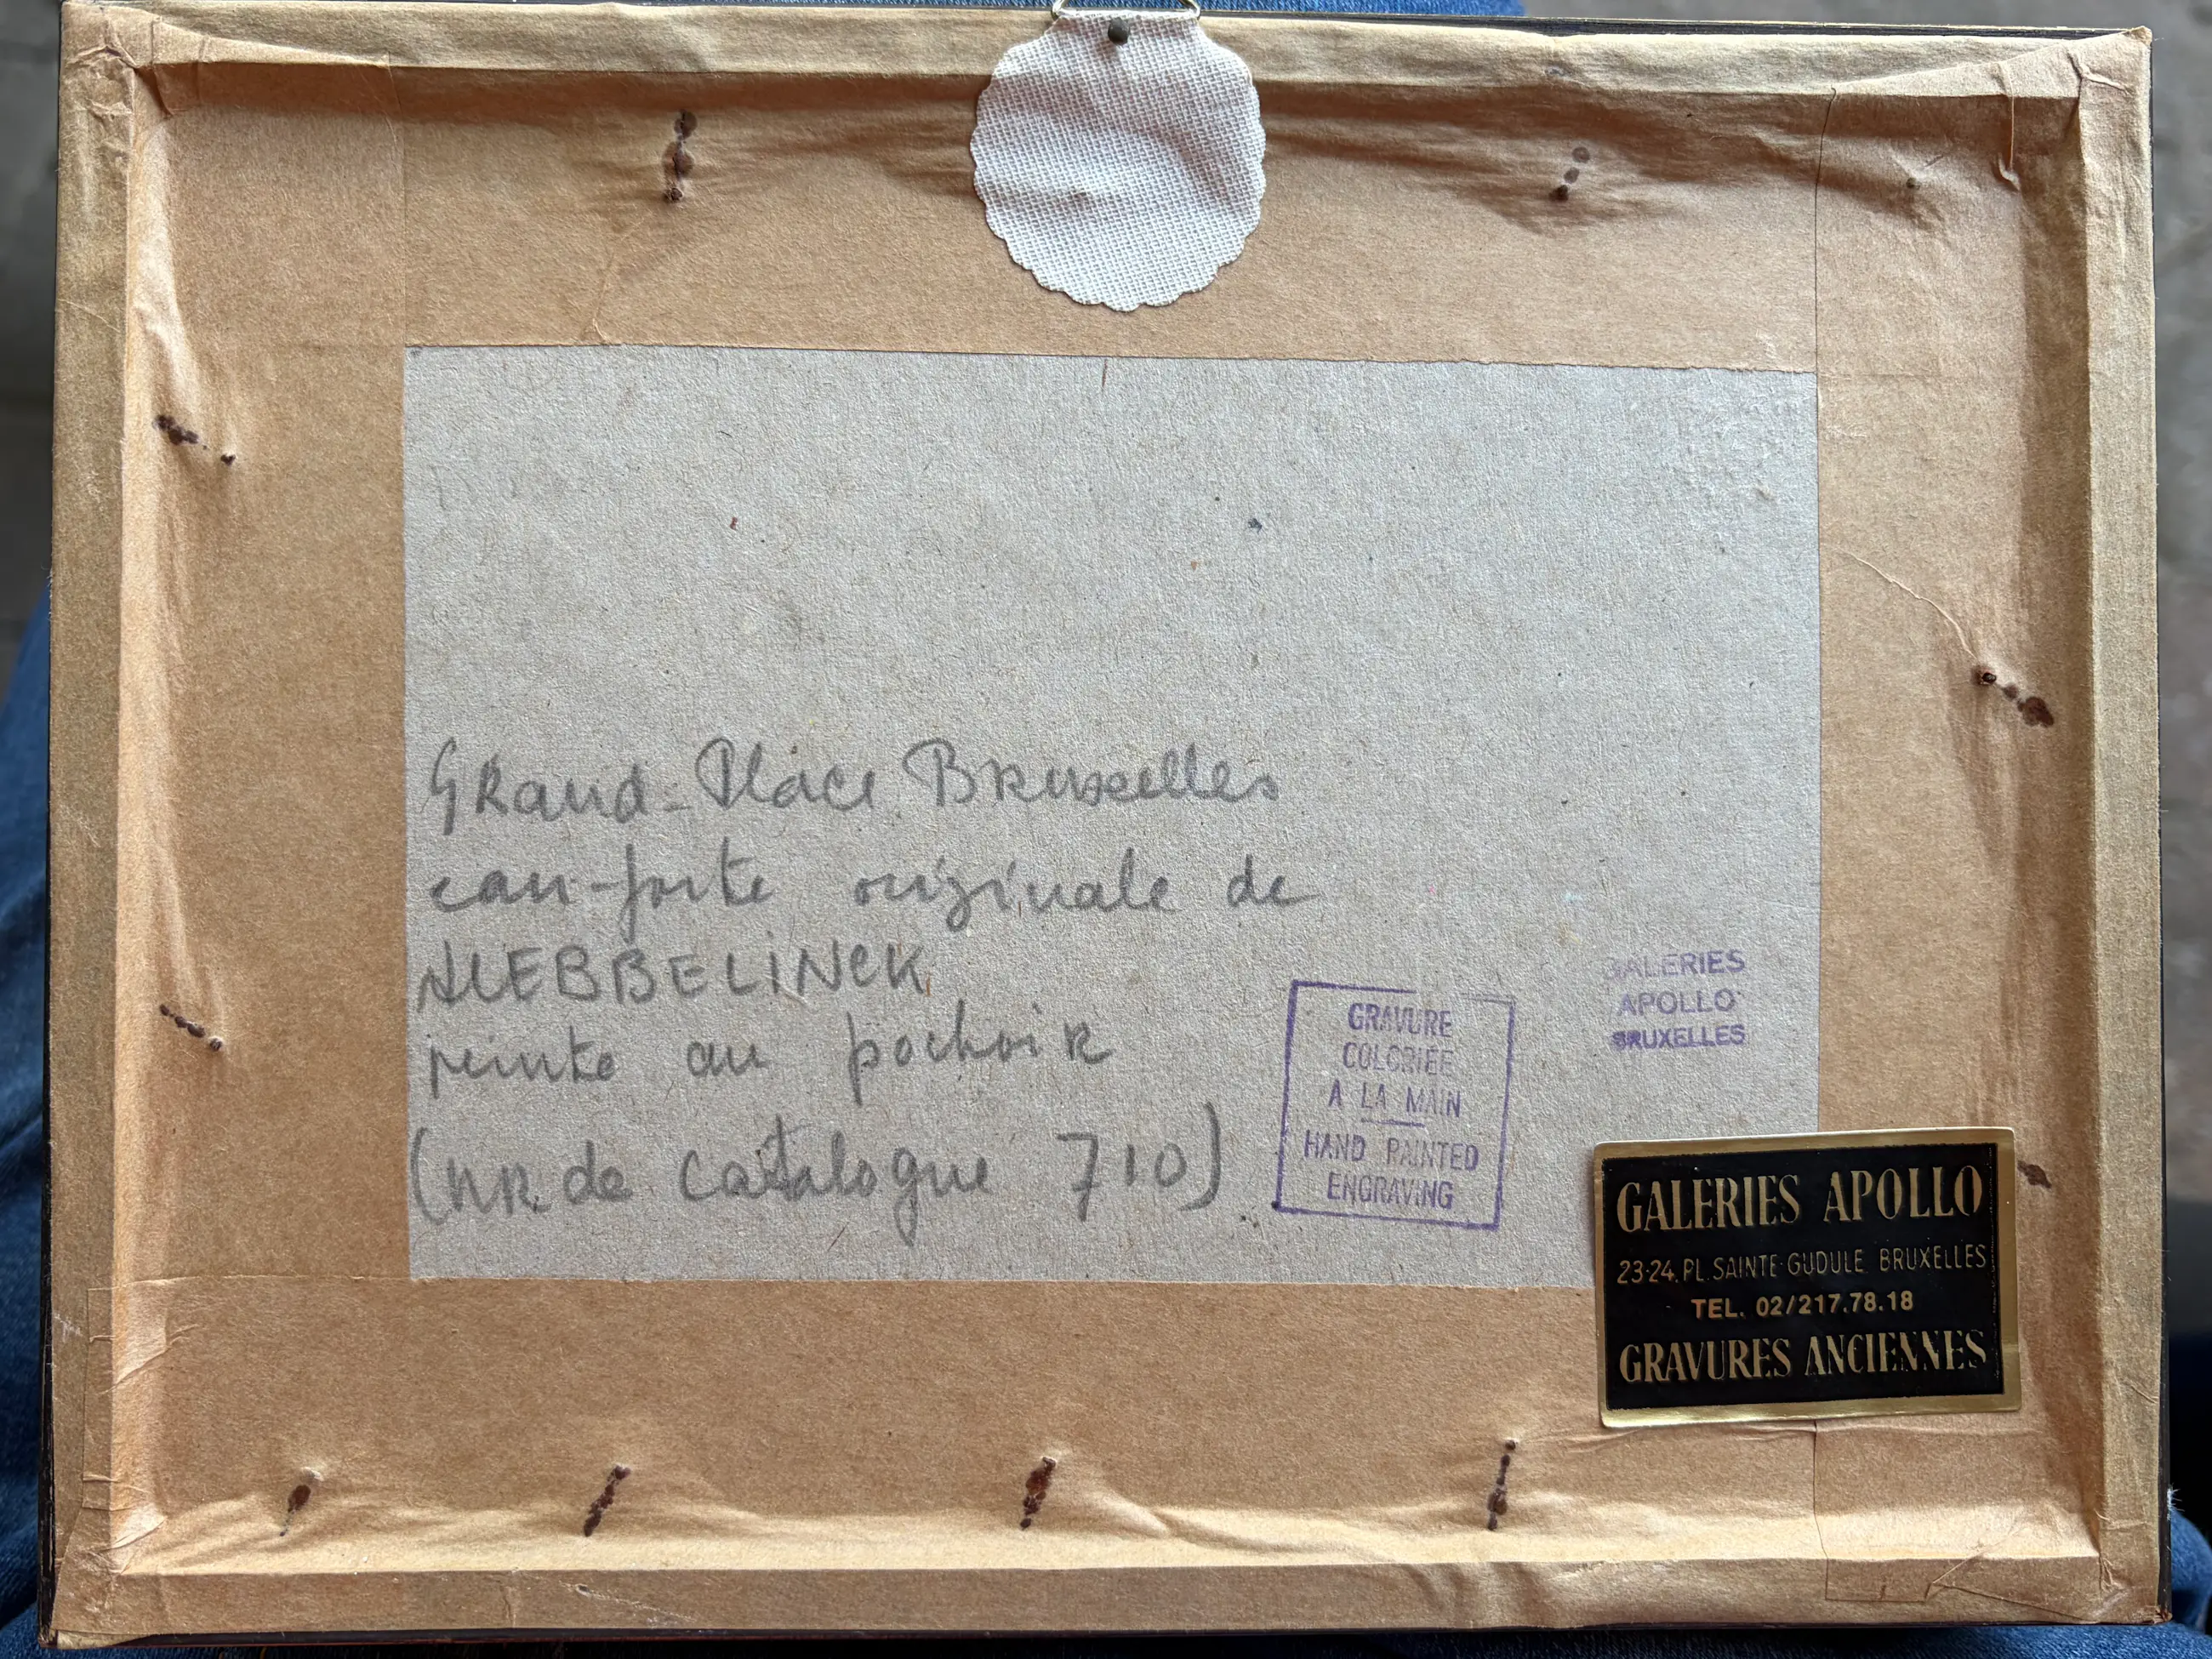 Grand-Place Bruxelles
eau-forte originale de
peinte au pochoir
(NR. de catalogue 710)
GRAVURE
COLORIÉE
A LA MAIN
HAND PAINTED
ENGRAVING
GALERIES
APOLLO
BRUXELLES
GALERIES APOLLO
23-24, PL. SAINTE-GUDULE BRUXELLES
TEL. 02/217.78.18
GRAVURES ANCIENNES